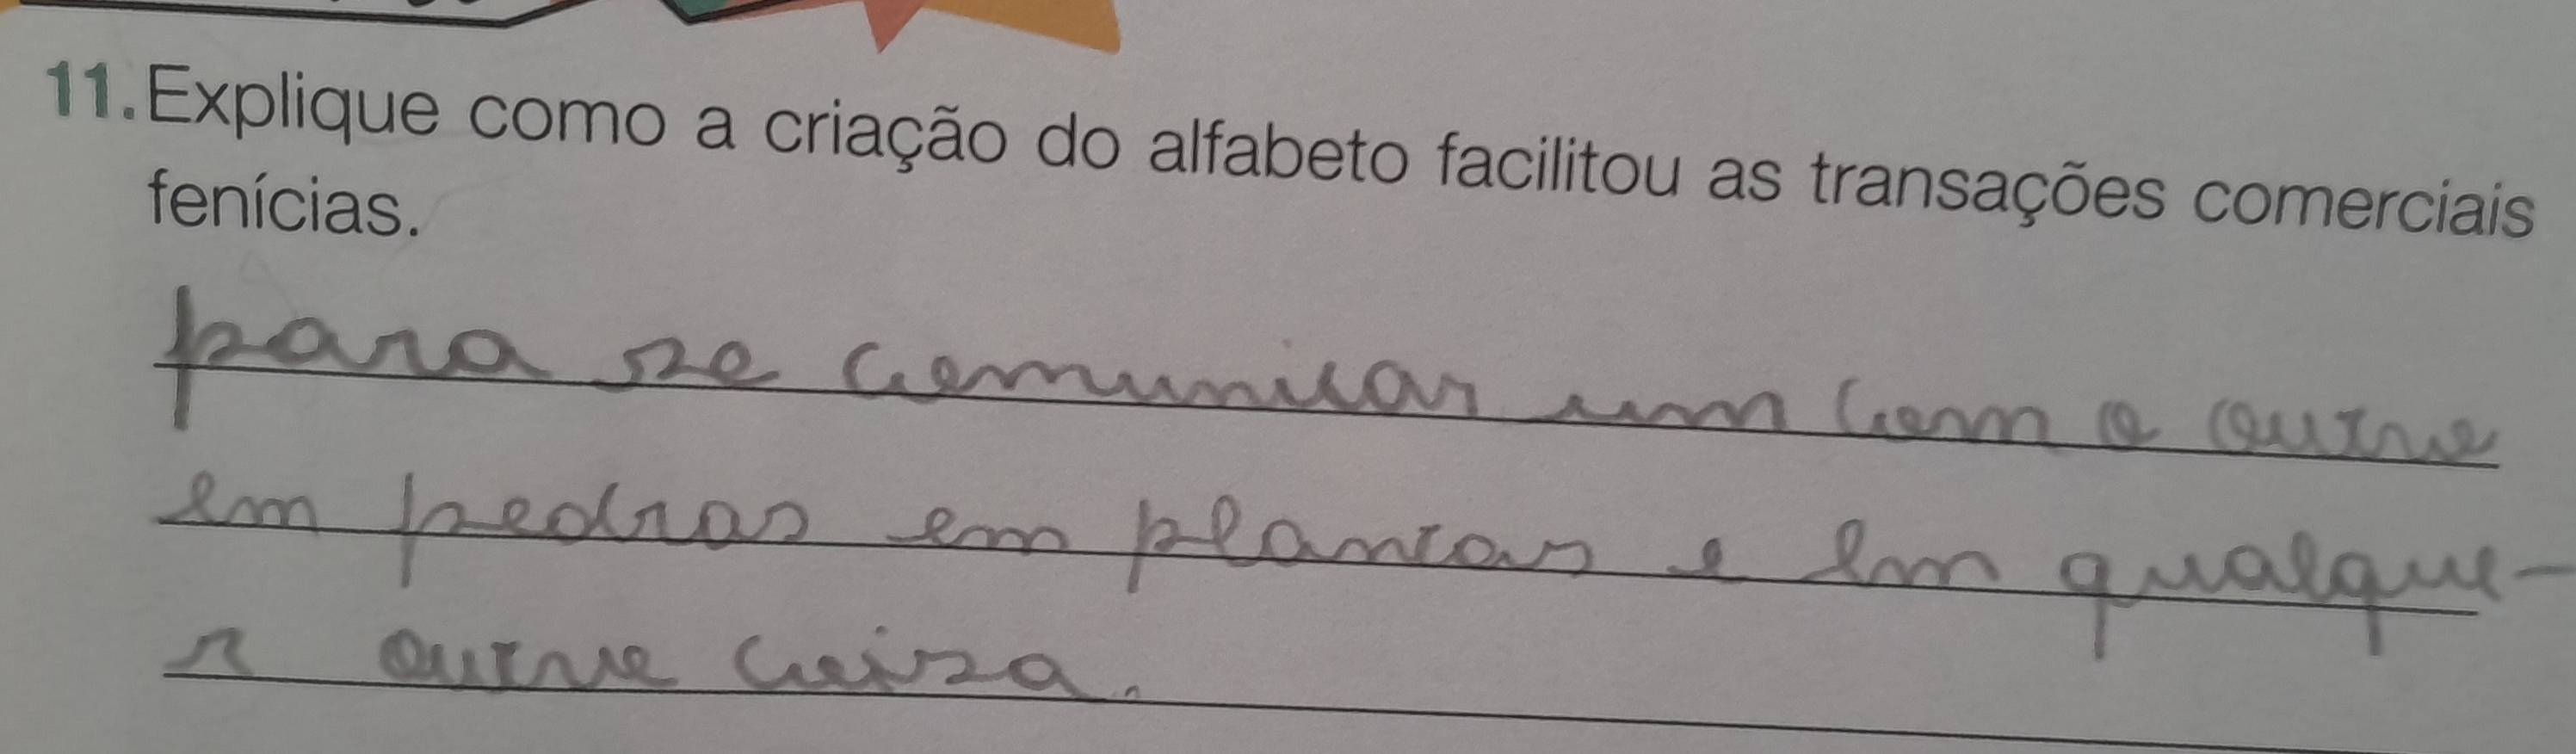 11. Explique como a criação do alfabeto facilitou as transações comerciais
fenícias.
para se comunicar um com o outro
em pedras em plantas e em qualque-
r outro coisa.